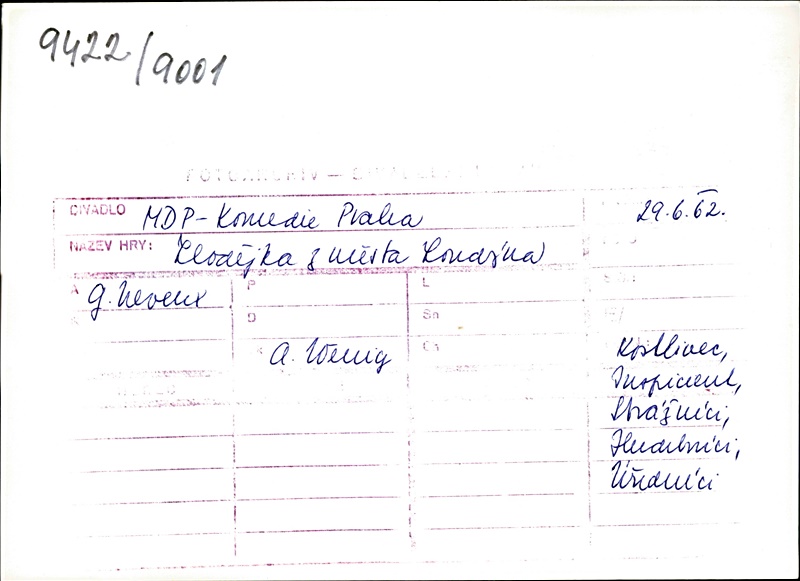 9422/9001
FOTOARCHIV –
DIVADLO MDP-Komedie Praha 29.6.62.
NÁZEV HRY: Zlodějka z města Londýna
A G. Neveux P L
D Sn
A. Wenig
Kostlivec,
Inspicient,
Strážníci,
Hudebníci,
Úředníci